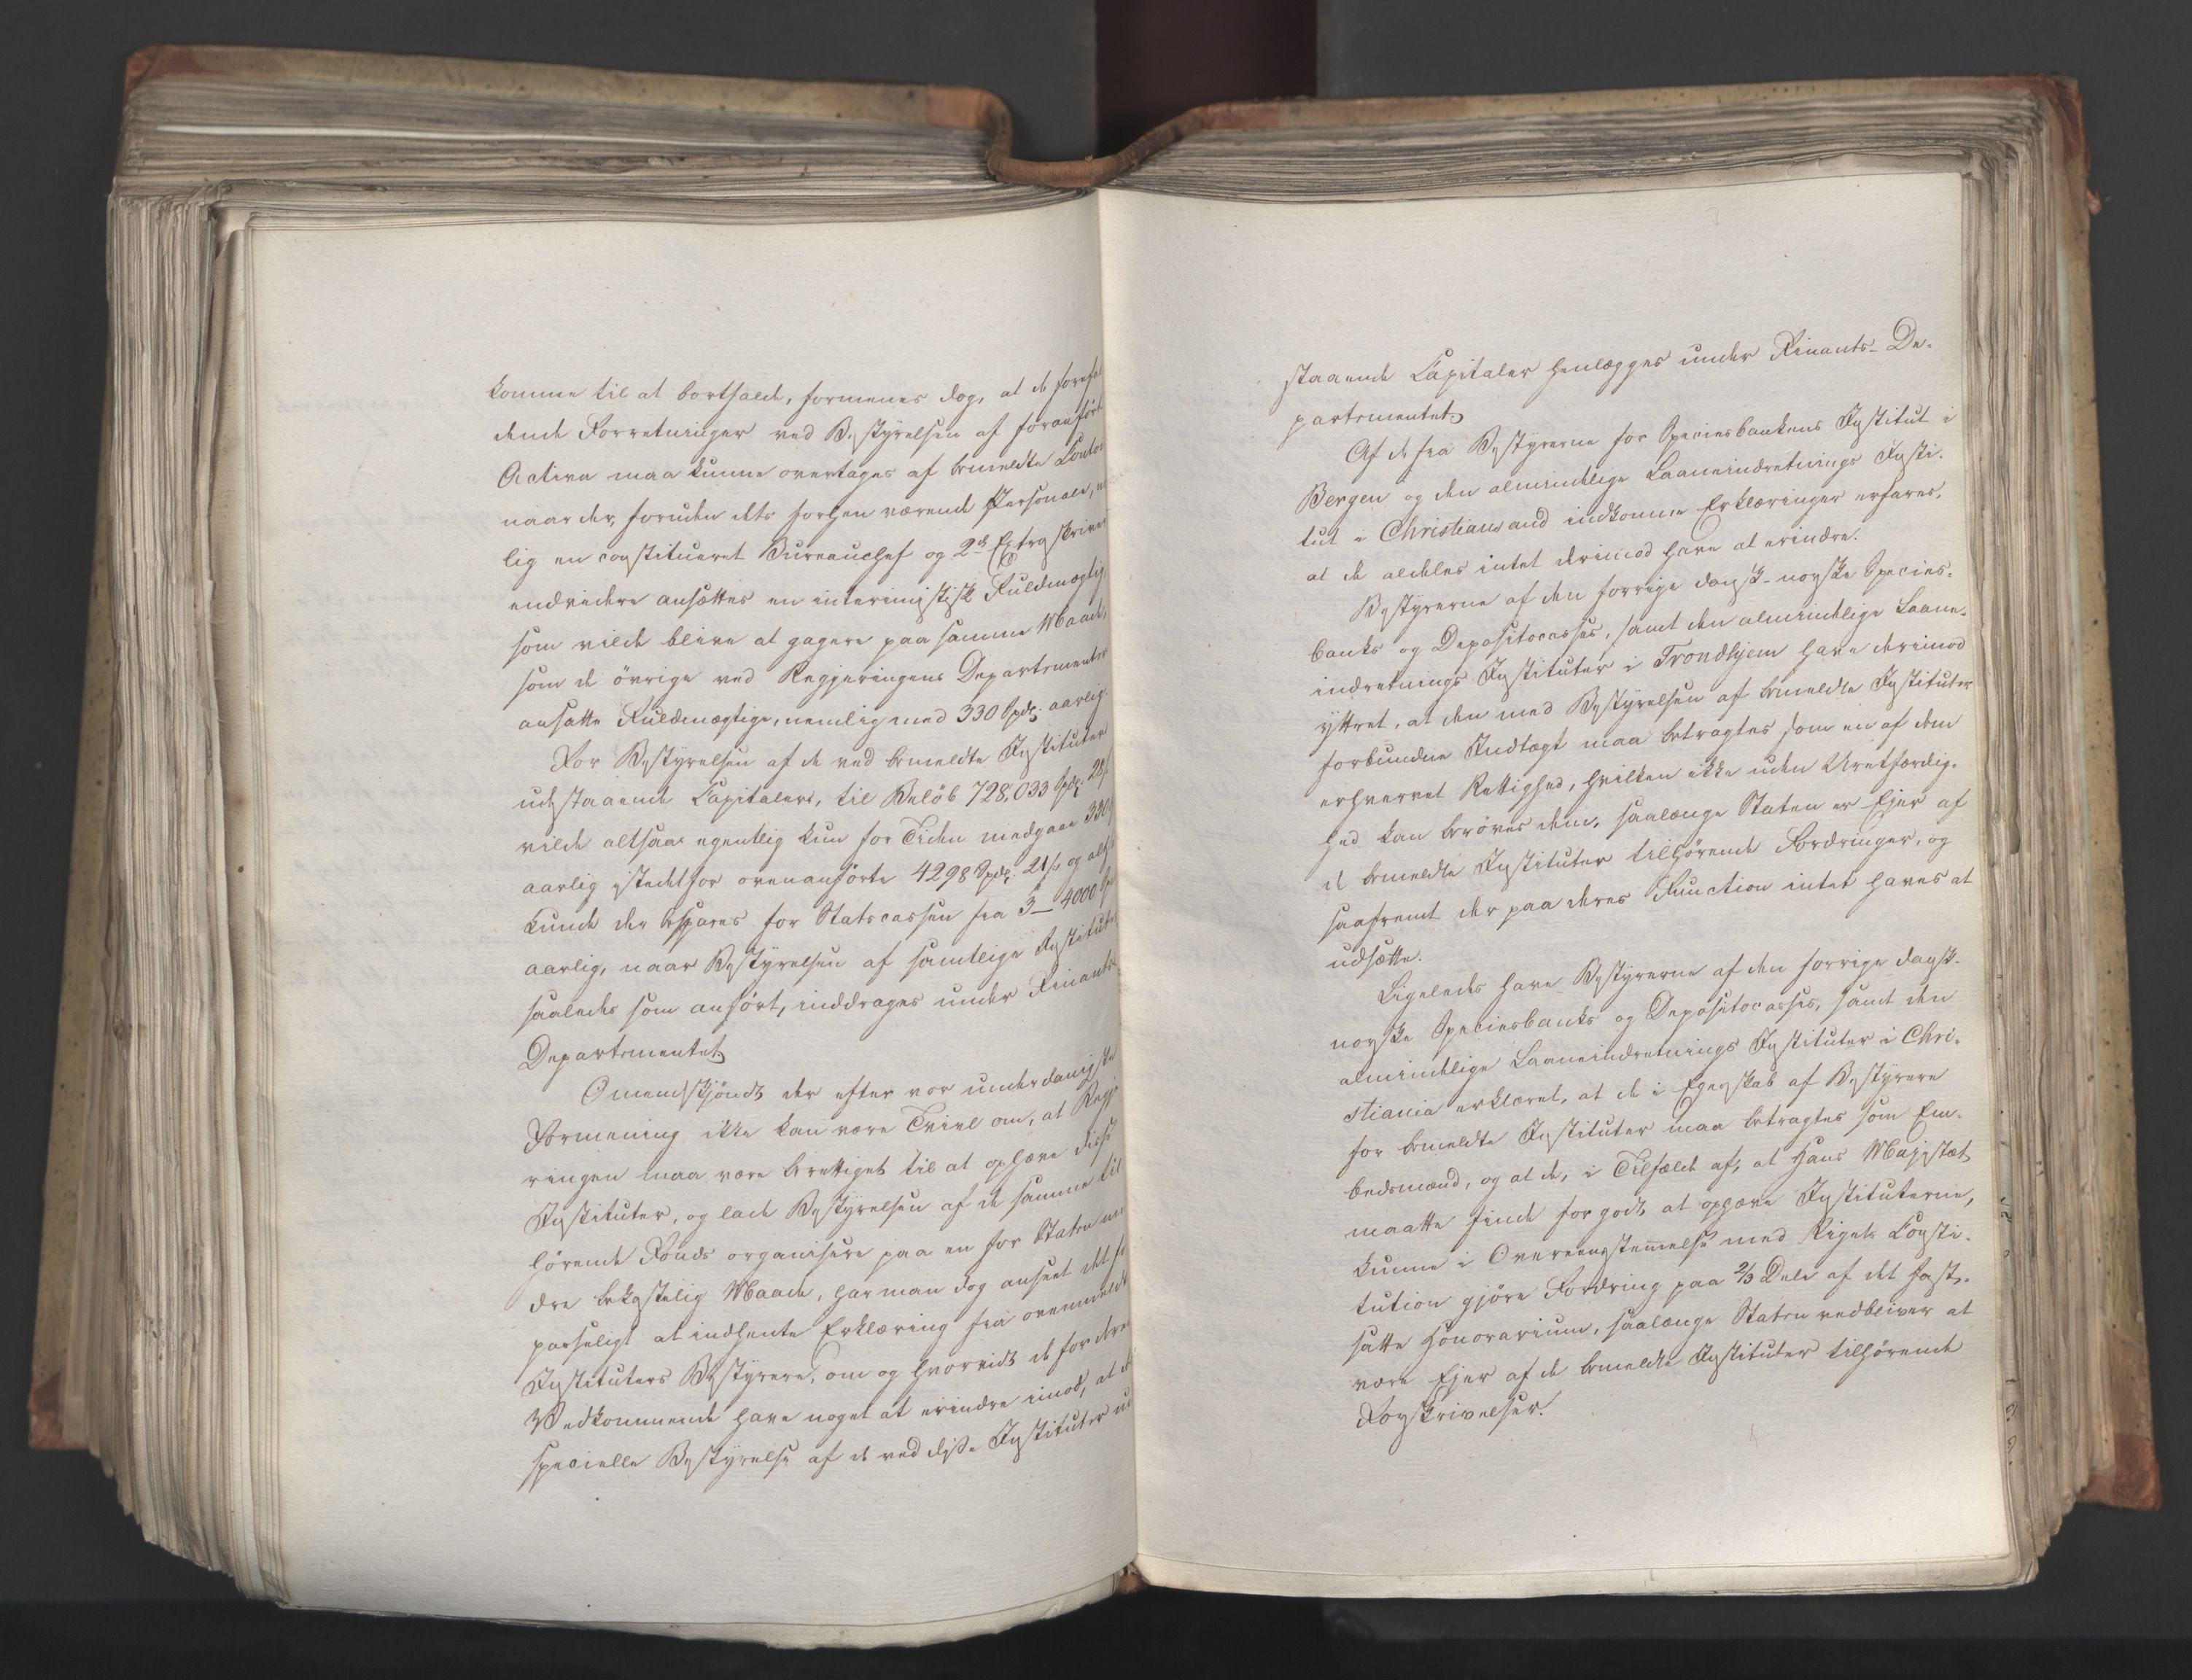 komme til at bortfalde, formenes dog, at de forefal
dende Forretninger ved Bestyrelsen af foranførte
Activa maa kunne overtages af bemeldte Contoi
naar der, foruden dets forhen værende Personale, nem
lig en constitueret Bureauchef og 2de Extraskrive
endvidere ansættes en interimistisk Fuldmægtig,
som vilde blive at gagere paa samme Maade,
som de øvrige ved Regjeringens Departementer
ansatte Fuldmægtige, nemlig med 330 Spdr. aarlig.
For Bestyrelsen af de ved bemeldte Instituter
udestaaende Capitaler, til Beløb 728,033 Spdr. 28ß
vilde altsaa egentlig kun for Tiden medgaae 330
aarlig istedetfor ovenanførte 4298 Spdr. 21ß og alts
kunde der bespares for Statscassen fra 3-4000 Sp
aarlig, naar Bestyrelsen af samtlige Institute
saaledes som anført, inddrages under Finants-
Departementet.
Omendskjøndt der efter vor underdanigste
Formening ikke kan være Tvivl om, at Regje
ringen maa være berettiget til at ophæve disse
Instituter, og lade Bestyrelsen af de samme til
hørende Fonds organisere paa en for Staten min
dre bekostelig Maade, har man dog anseet det for
passeligt at indhente Erklæring fra ovenmeldte
Instituters Bestyrere, om og hvorvidt de for deres
Vedkommende have noget at erindre imod, at de
specielle Bestyrelse af de ved disse Instituter ud
staaende Capitaler henlægges under Finants-De-
partementet.
Af de fra Bestyrerne for Speciesbankens Institut i
Bergen og den almindelige Laaneindretnings Insti-
tut i Christiansand indkomne Erklæringer erfares,
at de aldeles intet derimod have at erindre.
Bestyrerne af den forrige dansk-norske Species-
banks og Depositocasses, samt den almindelige Laane-
indretnings Instituter i Trondhjem have derimod
yttret, at den med Bestyrelsen af bemeldte Instituter
forbundne Indtægt maa betragtes som en af dem
erhvervet Rettighed, hvilken ikke uden Uretfærdig-
hed kan berøves dem, saalænge Staten er Ejer af
de bemeldte Instituter tilhørende Fordringer, og
saafremt der paa deres Function intet haves at
udsætte.
Ligeledes have Bestyrerne af den forrige dansk-
norske Speciesbanks og Depositocasses, samt den
almindelige Laaneindretnings Instituter i Chri-
stiania erklæret, at de i Egenskab af Bestyrere
for bemeldte Instituter maa betragtes som Em-
bedsmænd, og at de, i Tilfælde af, at Hans Majestæt
maatte finde for godt at ophæve Instituterne,
kunne i Overeensstemmelse med Rigets Consti-
tution gjøre Fordring paa 2/3 Dele af det fast-
satte Honorarium, saalænge Staten vedbliver at
være Ejer af de bemeldte Instituter tilhørende
Forskrivelser.